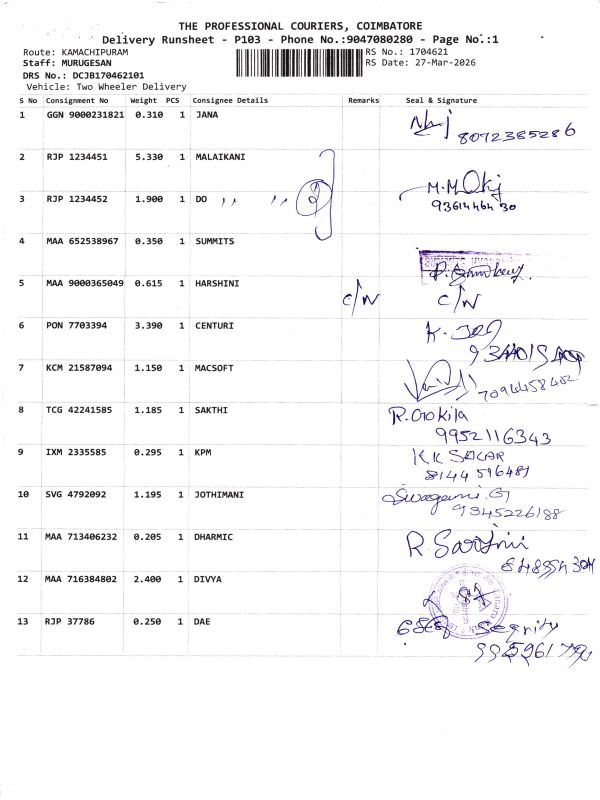 THE PROFESSIONAL COURIERS, COIMBATORE
Delivery Runsheet - P103 - Phone No.:9047080280 - Page No.:1
Route: KAMACHIPURAM RS No.: 1704621
Staff: MURUGESAN RS Date: 27-Mar-2026
DRS No.: DCJB170462101
Vehicle: Two Wheeler Delivery
S No Consignment No Weight PCS Consignee Details Remarks Seal & Signature
1 GGN 9000231821 0.310 1 JANA
8072385286
2 RJP 1234451 5.330 1 MALAIKANI
3 RJP 1234452 1.900 1 DO ,, ,, M.M
9361446430
4 MAA 652538967 0.350 1 SUMMITS
5 MAA 9000365049 0.615 1 HARSHINI C/N C/N
6 PON 7703394 3.390 1 CENTURI
7 KCM 21587094 1.150 1 MACSOFT
7094458402
8 TCG 42241585 1.185 1 SAKTHI R.Gokila
9952116343
9 IXM 2335585 0.295 1 KPM KK SEKAR
8144 516481
10 SVG 4792092 1.195 1 JOTHIMANI
9345226188
11 MAA 713406232 0.205 1 DHARMIC R Sarojini
12 MAA 716384802 2.400 1 DIVYA
13 RJP 37786 0.250 1 DAE